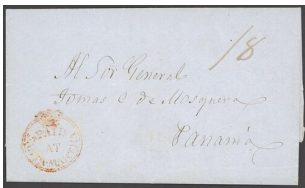 1/8
Al Sor General
Tomas C de Mosquera
Panamá
PAID
AT